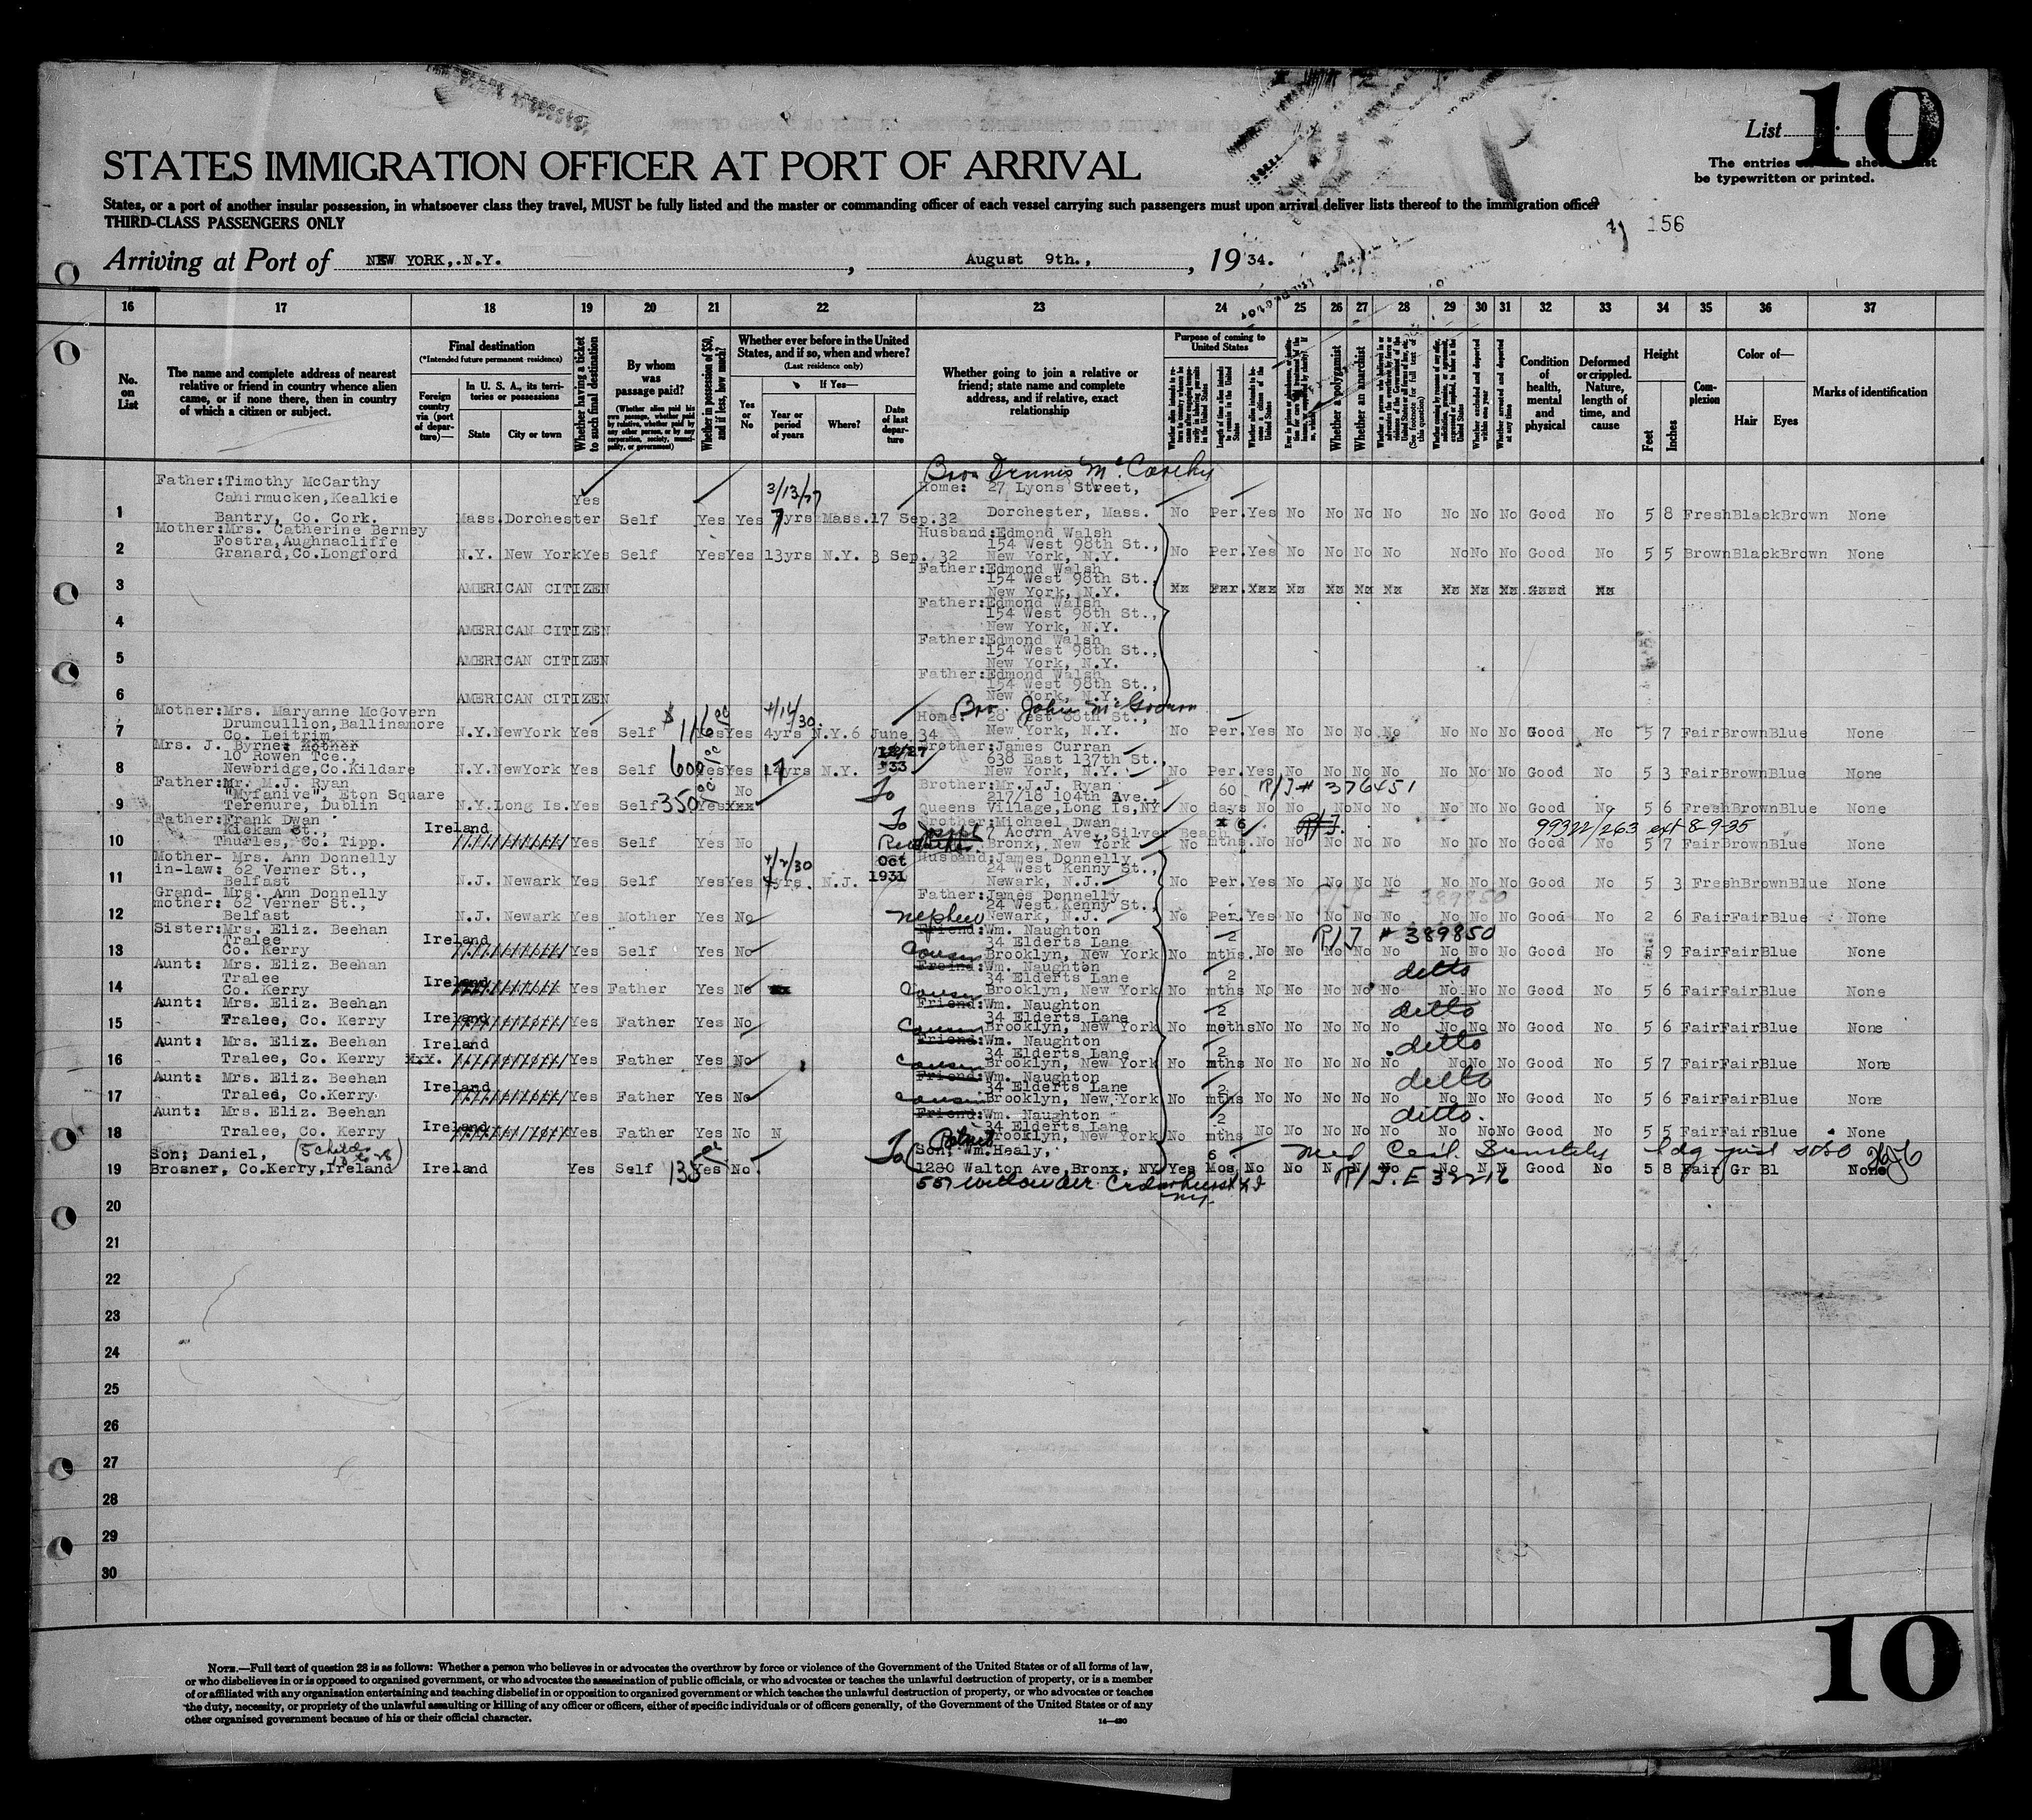 List 10
The entries on this sheet must
be typewritten or printed.
STATES IMMIGRATION OFFICER AT PORT OF ARRIVAL
States, or a port of another insular possession, in whatsoever class they travel, MUST be fully listed and the master or commanding officer of each vessel carrying such passengers must upon arrival deliver lists thereof to the immigration officer
THIRD-CLASS PASSENGERS ONLY
156
Arriving at Port of NEW YORK, N.Y. , August 9th., , 1934.
16 17 18 19 20 21 22 23 24 25 26 27 28 29 30 31 32 33 34 35 36 37
No. on List
The name and complete address of nearest relative or friend in country whence alien came, or if none there, then in country of which a citizen or subject.
Final destination
(*Intended future permanent residence)
Foreign country via (port of departure)—
In U. S. A., its territories or possessions
State City or town
Whether having a ticket to such final destination
By whom was passage paid?
(Whether alien paid his own passage, whether paid by relative, whether paid by any other person, or by any corporation, society, municipality, or government)
Whether in possession of $50, and if less, how much?
Whether ever before in the United States, and if so, when and where?
(Last residence only)
Yes or No
If Yes—
Year or period of years Where? Date of last departure
Whether going to join a relative or friend; state name and complete address, and if relative, exact relationship
Purpose of coming to United States
Whether a polygamist
Whether an anarchist
Condition of health, mental and physical
Deformed or crippled. Nature, length of time, and cause
Height
Feet Inches
Complexion
Color of—
Hair Eyes
Marks of identification
Bro. Dennis McCarthy
Father:Timothy McCarthy
Cahirmucken,Kealkie Yes 3/13/27 Home: 27 Lyons Street,
1 Bantry, Co. Cork. Mass. Dorchester Self Yes Yes 7yrs Mass. 17 Sep.32 Dorchester, Mass. No Per. Yes No No No No No No No Good No 5 8 Fresh Black Brown None
Mother:Mrs. Catherine Berney Husband:Edmond Walsh
Fostra,Aughnacliffe 154 West 98th St.,
2 Granard,Co.Longford N.Y. New York Yes Self Yes Yes 13yrs N.Y. 3 Sep. 32 New York, N.Y. No Per. Yes No No No No No No No Good No 5 5 Brown Black Brown None
Father:Edmond Walsh
154 West 98th St.,
3 AMERICAN CITIZEN New York, N.Y.
Father:Edmond Walsh
154 West 98th St.,
4 AMERICAN CITIZEN New York, N.Y.
Father:Edmond Walsh
154 West 98th St.,
5 AMERICAN CITIZEN New York, N.Y.
Father:Edmond Walsh
154 West 98th St.,
6 AMERICAN CITIZEN New York, N.Y.
Bro. John McGovern
Mother:Mrs. Maryanne McGovern Home: 28 West 88th St.,
Drumcullion,Ballinamore
7 Co. Leitrim N.Y. New York Yes Self $116 Yes Yes 4yrs N.Y. 6 June 34 New York, N.Y. No Per. Yes No No No No No No No Good No 5 7 Fair Brown Blue None
Mrs. J. Byrne: Mother Brother:James Curran
10 Rowen Tce., 638 East 137th St.,
8 Newbridge,Co.Kildare N.Y. New York Yes Self 600 Yes Yes N.Y. 12/27 '33 New York, N.Y. No Per. Yes No No No No No No No Good No 5 3 Fair Brown Blue None
Father:Mr. M.J. Ryan No To Brother:Mr.J.J. Ryan 60 R/J # 376451
"Myfanive", Eton Square 217/18 104th Ave.,
9 Terenure, Dublin N.Y. Long Is. Yes Self 350 Yes Queens Village,Long Is,NY No days No No No No No No No No Good No 5 6 Fresh Brown Blue None
Father:Frank Dwan To Brother:Michael Dwan 6 R/J. 99322/263 ext 8-9-35
Kickam St., Ireland 7 Acorn Ave.,Silver Beach
10 Thurles, Co. Tipp. Yes Self Yes No Bronx, New York No mths. No No No No No No No No Good No 5 7 Fair Brown Blue None
Mother- Mrs. Ann Donnelly 4/2/30 Oct Husband:James Donnelly
in-law: 62 Verner St., 24 West Kenny St.,
11 Belfast N.J. Newark Yes Self Yes Yes N.J. 1931 Newark, N.J. No Per. Yes No No No No No No No Good No 5 3 Fresh Brown Blue None
Grand- Mrs. Ann Donnelly Father:James Donnelly R/J # 389850
mother: 62 Verner St., 24 West Kenny St.,
12 Belfast N.J. Newark Yes Mother Yes No Newark, N.J. No Per. Yes No No No No No No No Good No 2 6 Fair Fair Blue None
nephew
Sister:Mrs. Eliz. Beehan Friend:Wm. Naughton 2 R/J # 389850
Tralee Ireland 34 Elderts Lane
13 Co. Kerry Yes Self Yes No Cousin Brooklyn, New York No mths. No No No No No No No No Good No 5 9 Fair Fair Blue None
Aunt: Mrs. Eliz. Beehan Freind:Wm. Naughton 2 ditto
Tralee Ireland 34 Elderts Lane
14 Co. Kerry Yes Father Yes No Cousin Brooklyn, New York No mths No No No No No No No No Good No 5 6 Fair Fair Blue None
Aunt: Mrs. Eliz. Beehan Friend:Wm. Naughton 2 ditto
15 Tralee, Co. Kerry Ireland Yes Father Yes No 34 Elderts Lane
Cousin Brooklyn, New York No moths No No No No No No No No Good No 5 6 Fair Fair Blue None
Aunt: Mrs. Elix. Beehan Ireland Friend:Wm. Naughton 2 ditto
16 Tralee, Co. Kerry XXX. Yes Father Yes No 34 Elderts Lane
Cousin Brooklyn, New York No mths No No No No No No No No Good No 5 7 Fair Fair Blue None
Aunt: Mrs. Eliz. Beehan Friend:Wm. Naughton 2 ditto
17 Traled, Co.Kerry Ireland Yes Father Yes No 34 Elderts Lane
cousin Brooklyn, New York No mths No No No No No No No No Good No 5 6 Fair Fair Blue None
Aunt: Mrs. Eliz. Beehan Friend:Wm. Naughton 2 ditto.
18 Tralee, Co. Kerry Ireland Yes Father Yes No N 34 Elderts Lane
Brooklyn, New York No mths No No No No No No No No Good No 5 5 Fair Fair Blue None
Son; Daniel, To Son; Wm.Healy, 6 Med Cert. Senility
19 Brosner, Co.Kerry,Ireland Ireland Yes Self 135 Yes No. 1280 Walton Ave,Bronx, NY Yes Mos No No N N No No N N Good No 5 8 Fair Gr Bl None
R/J. E 32216
20
21
22
23
24
25
26
27
28
29
30
NOTE.—Full text of question 28 is as follows: Whether a person who believes in or advocates the overthrow by force or violence of the Government of the United States or of all forms of law,
or who disbelieves in or is opposed to organized government, or who advocates the assassination of public officials, or who advocates or teaches the unlawful destruction of property, or is a member
of or affiliated with any organization entertaining and teaching disbelief in or opposition to organized government or which teaches the unlawful destruction of property, or who advocates or teaches
the duty, necessity, or propriety of the unlawful assaulting or killing of any officer or officers, either of specific individuals or of officers generally, of the Government of the United States or of any
other organized government because of his or their official character.
14—430
10